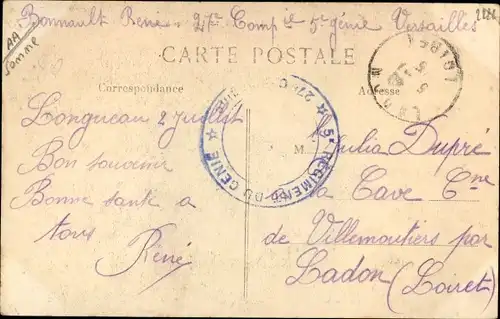 Bonnault René 27e Compie 5e génie Versailles
2886
AA
Somme
CARTE POSTALE
Correspondance
Adresse
LADON
LOIRET
5e RÉGIMENT DU GÉNIE
Longueau 2 Juillet
Bon souvenir
Bonne santé a
tous
René
M
Julia Dupré
la Cave Cne
de Villemoutiers par
Ladon (Loiret)